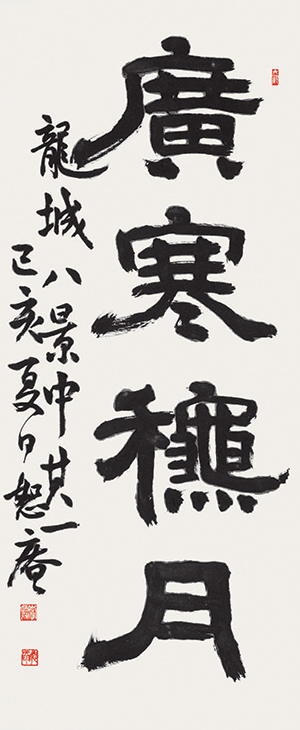 廣寒龝月
龍城八景中其一
己亥夏日恕庵